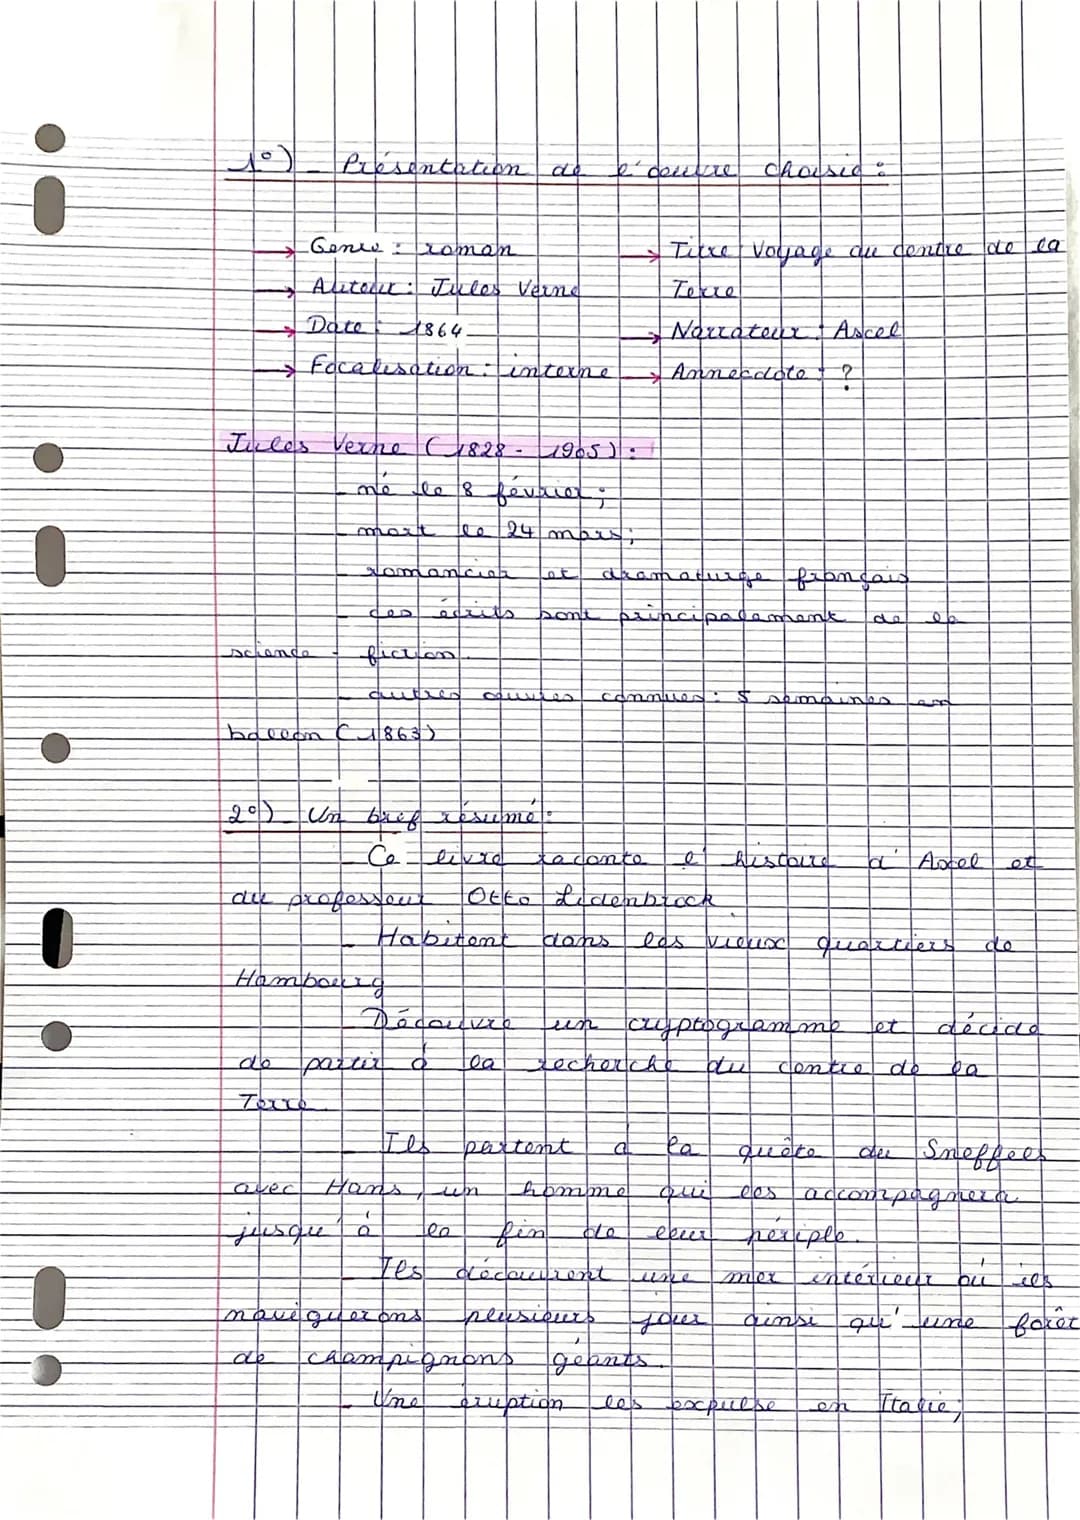 1°) - Présentation de l'oeuvre choisie :
→ Genre : roman
→ Auteur : Jules Verne
→ Date : 1864
→ Focalisation : interne
→ Titre Voyage au centre de la
Terre
→ Narrateur : Axcel
→ Annecdote : ?
Jules Verne (1828 - 1905) :
- né le 8 février ;
- mort le 24 mars ;
- romancier et dramaturge français
- des écrits sont principalement de la
science - fiction.
- autres œuvres connues : 5 semaines en
ballon (1863)
2°) - Un bref résumé :
- Ce livre raconte l'histoire d'Axel et
du professeur Otto Lidenbrock
- Habitent dans les vieux quartiers de
Hambourg
- Découvre un cryptogramme et décide
de partir à la recherche du centre de la
Terre
- Ils partent à la quête du Sneffels
avec Hans, un homme qui les accompagnera
jusqu'à la fin de leur périple.
- Ils découvrent une mer intérieur où ils
naviguerons plusieurs jour ainsi qu'une forêt
de champignons géants.
- Une éruption les expulse en Italie,